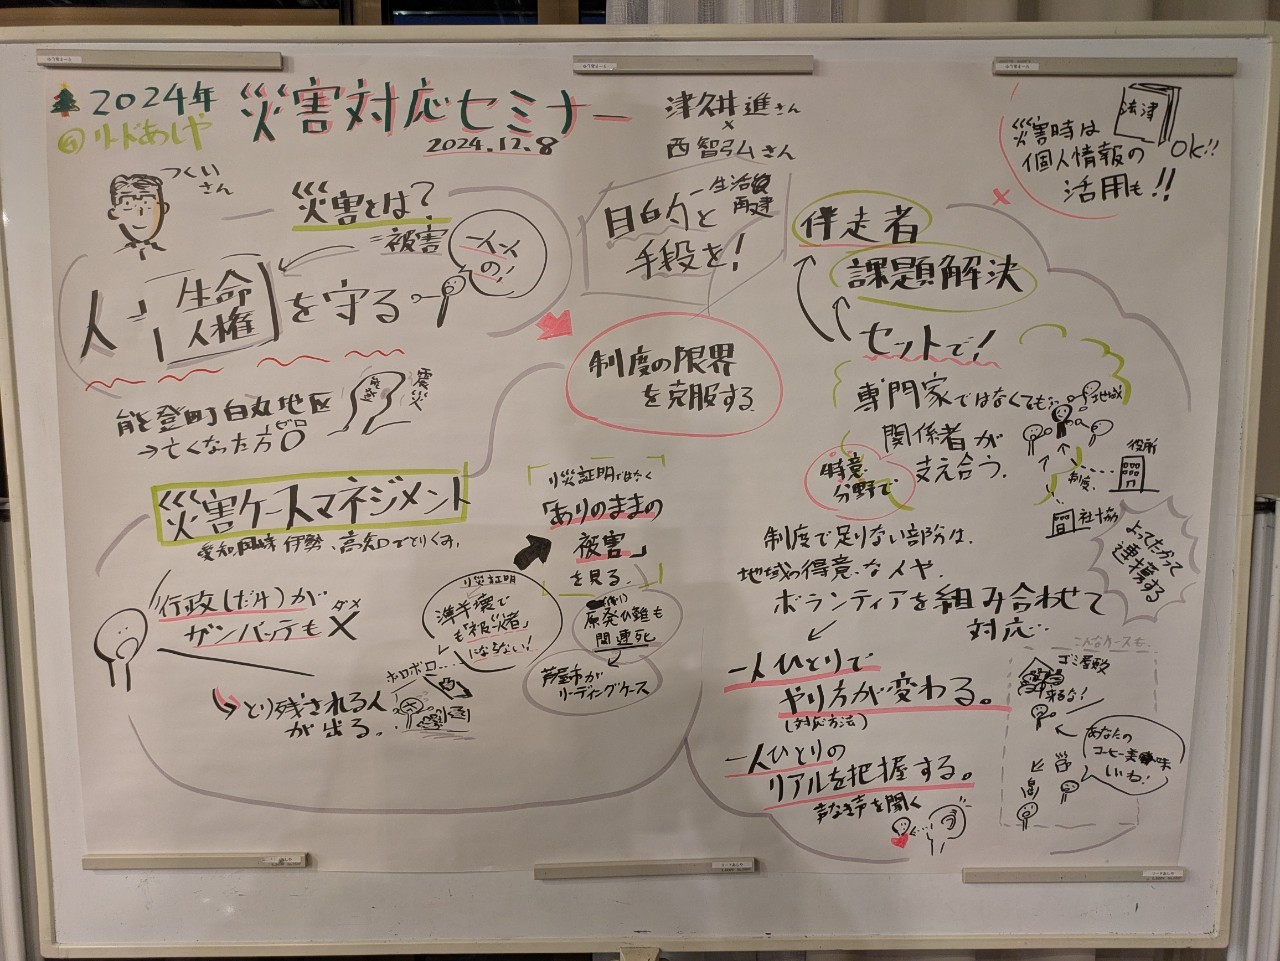 2024年
災害対応セミナー
@リードあしや
2024.12.8
津久井進さん
×
西智弘さん
法律
災害時は
個人情報の
活用も!!
OK!!
つくい
さん
災害とは?
=被害
一人一人
の!
人=「生命
人権」
を守る
目的と
手段を!
生活後
再建
伴走者
課題解決
セットで!
制度の限界
を克服する
能登町白丸地区
→亡くなった方0
ゼロ
震災
専門家ではなくても
関係者が
支え合う。
得意
分野で
地域
役所
制度
社協
よってたかって
連携する
災害ケースマネジメント
愛知 岡崎 伊勢、高知でとりくみ。
行政(だけ)が
ガンバッテも
ダメ
×
とり残される人
が出る。
り災証明
準半壊で
も「被災者」
にならない!
ボロボロ…
り災証明ではなく
「ありのままの
被害」
を見る
原発ひ難も
関連死
芦屋市が
リーディングケース
制度で足りない部分は、
地域の得意な人や、
ボランティアを組み合わせて
対応…
一人ひとりで
やり方が変わる。
(対応方法)
一人ひとりの
リアルを把握する。
声なき声を聞く
こんなケースも…
ゴミ屋敷
来るな!
あなたの
コーヒー美味
いね!